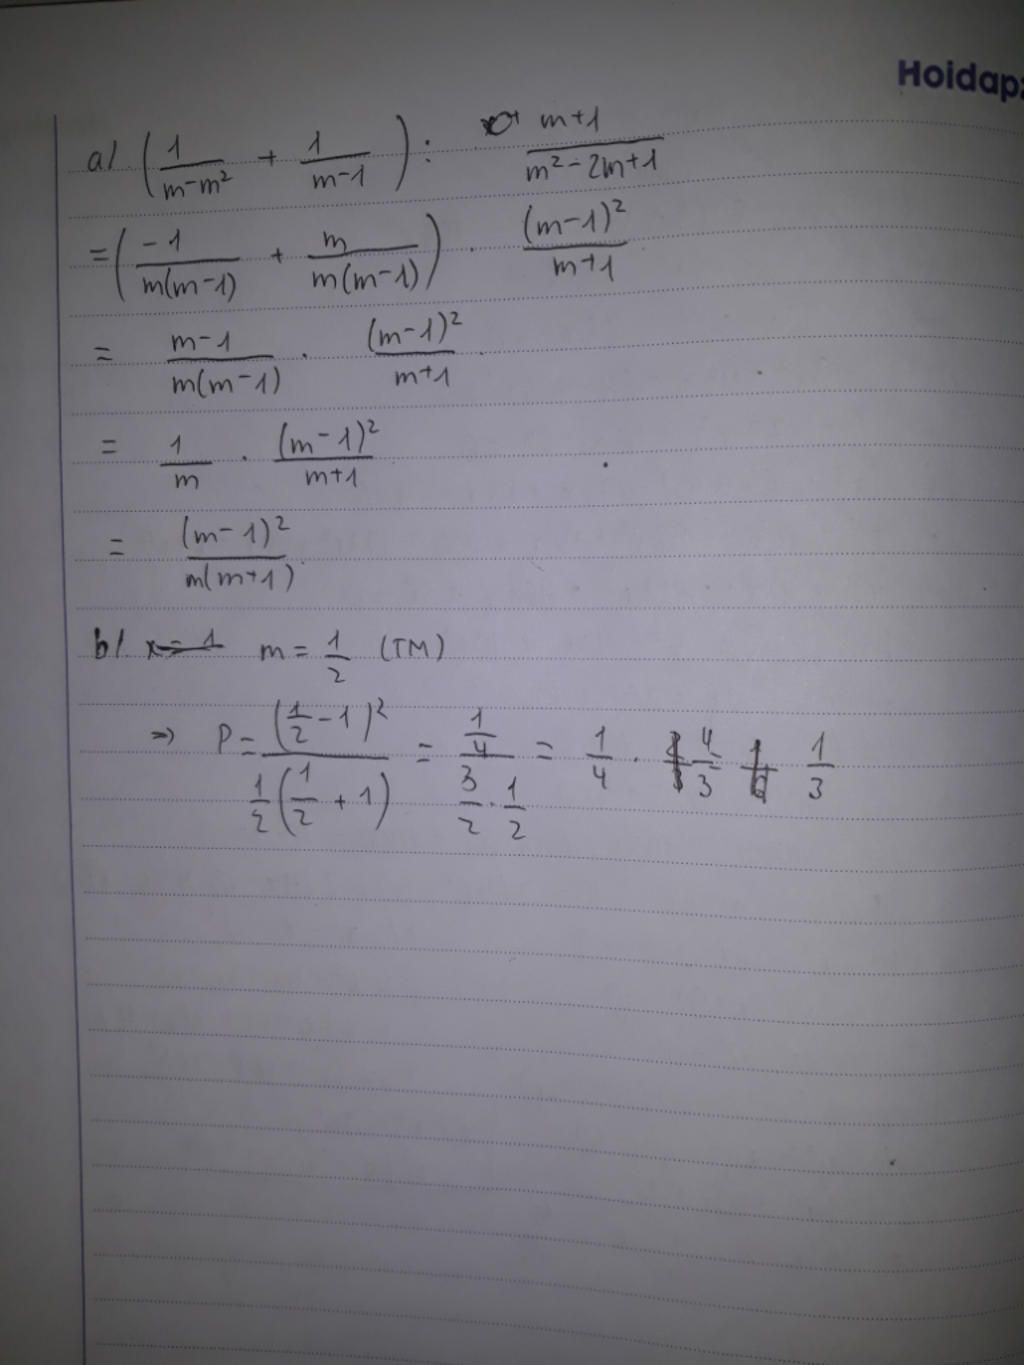 Hoidap
a/ (1/(m-m²) + 1/(m-1)) : (m+1)/(m²-2m+1)
= (-1/(m(m-1)) + m/(m(m-1))) . (m-1)²/(m+1)
= (m-1)/(m(m-1)) . (m-1)²/(m+1)
= 1/m . (m-1)²/(m+1)
= (m-1)²/(m(m+1))
b/. x = 1 m = 1/2 (TM)
=> P = (1/2 - 1)²/(1/2(1/2 + 1)) = (1/4)/(3/2 . 1/2) = 1/4 . 4/3 = 1/3